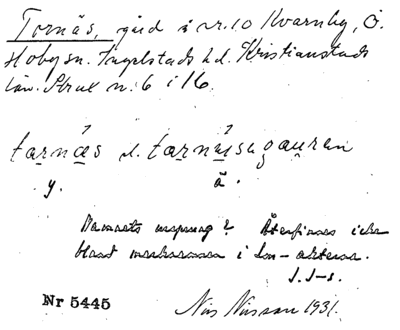 Tornäs, gård i nr. 10 Kvarnby, Ö.
Hoby sn. Ingelstads hd. Kristianstads
län. Skrul n:6 i 16.
tarnäs l. tarnäsugauren
y. å.
Namnets ursprung? Återfinnes icke
bland markerna i Lm-akterna.
J. J-s.
Nr 5445 Nils Nilsson 1931.